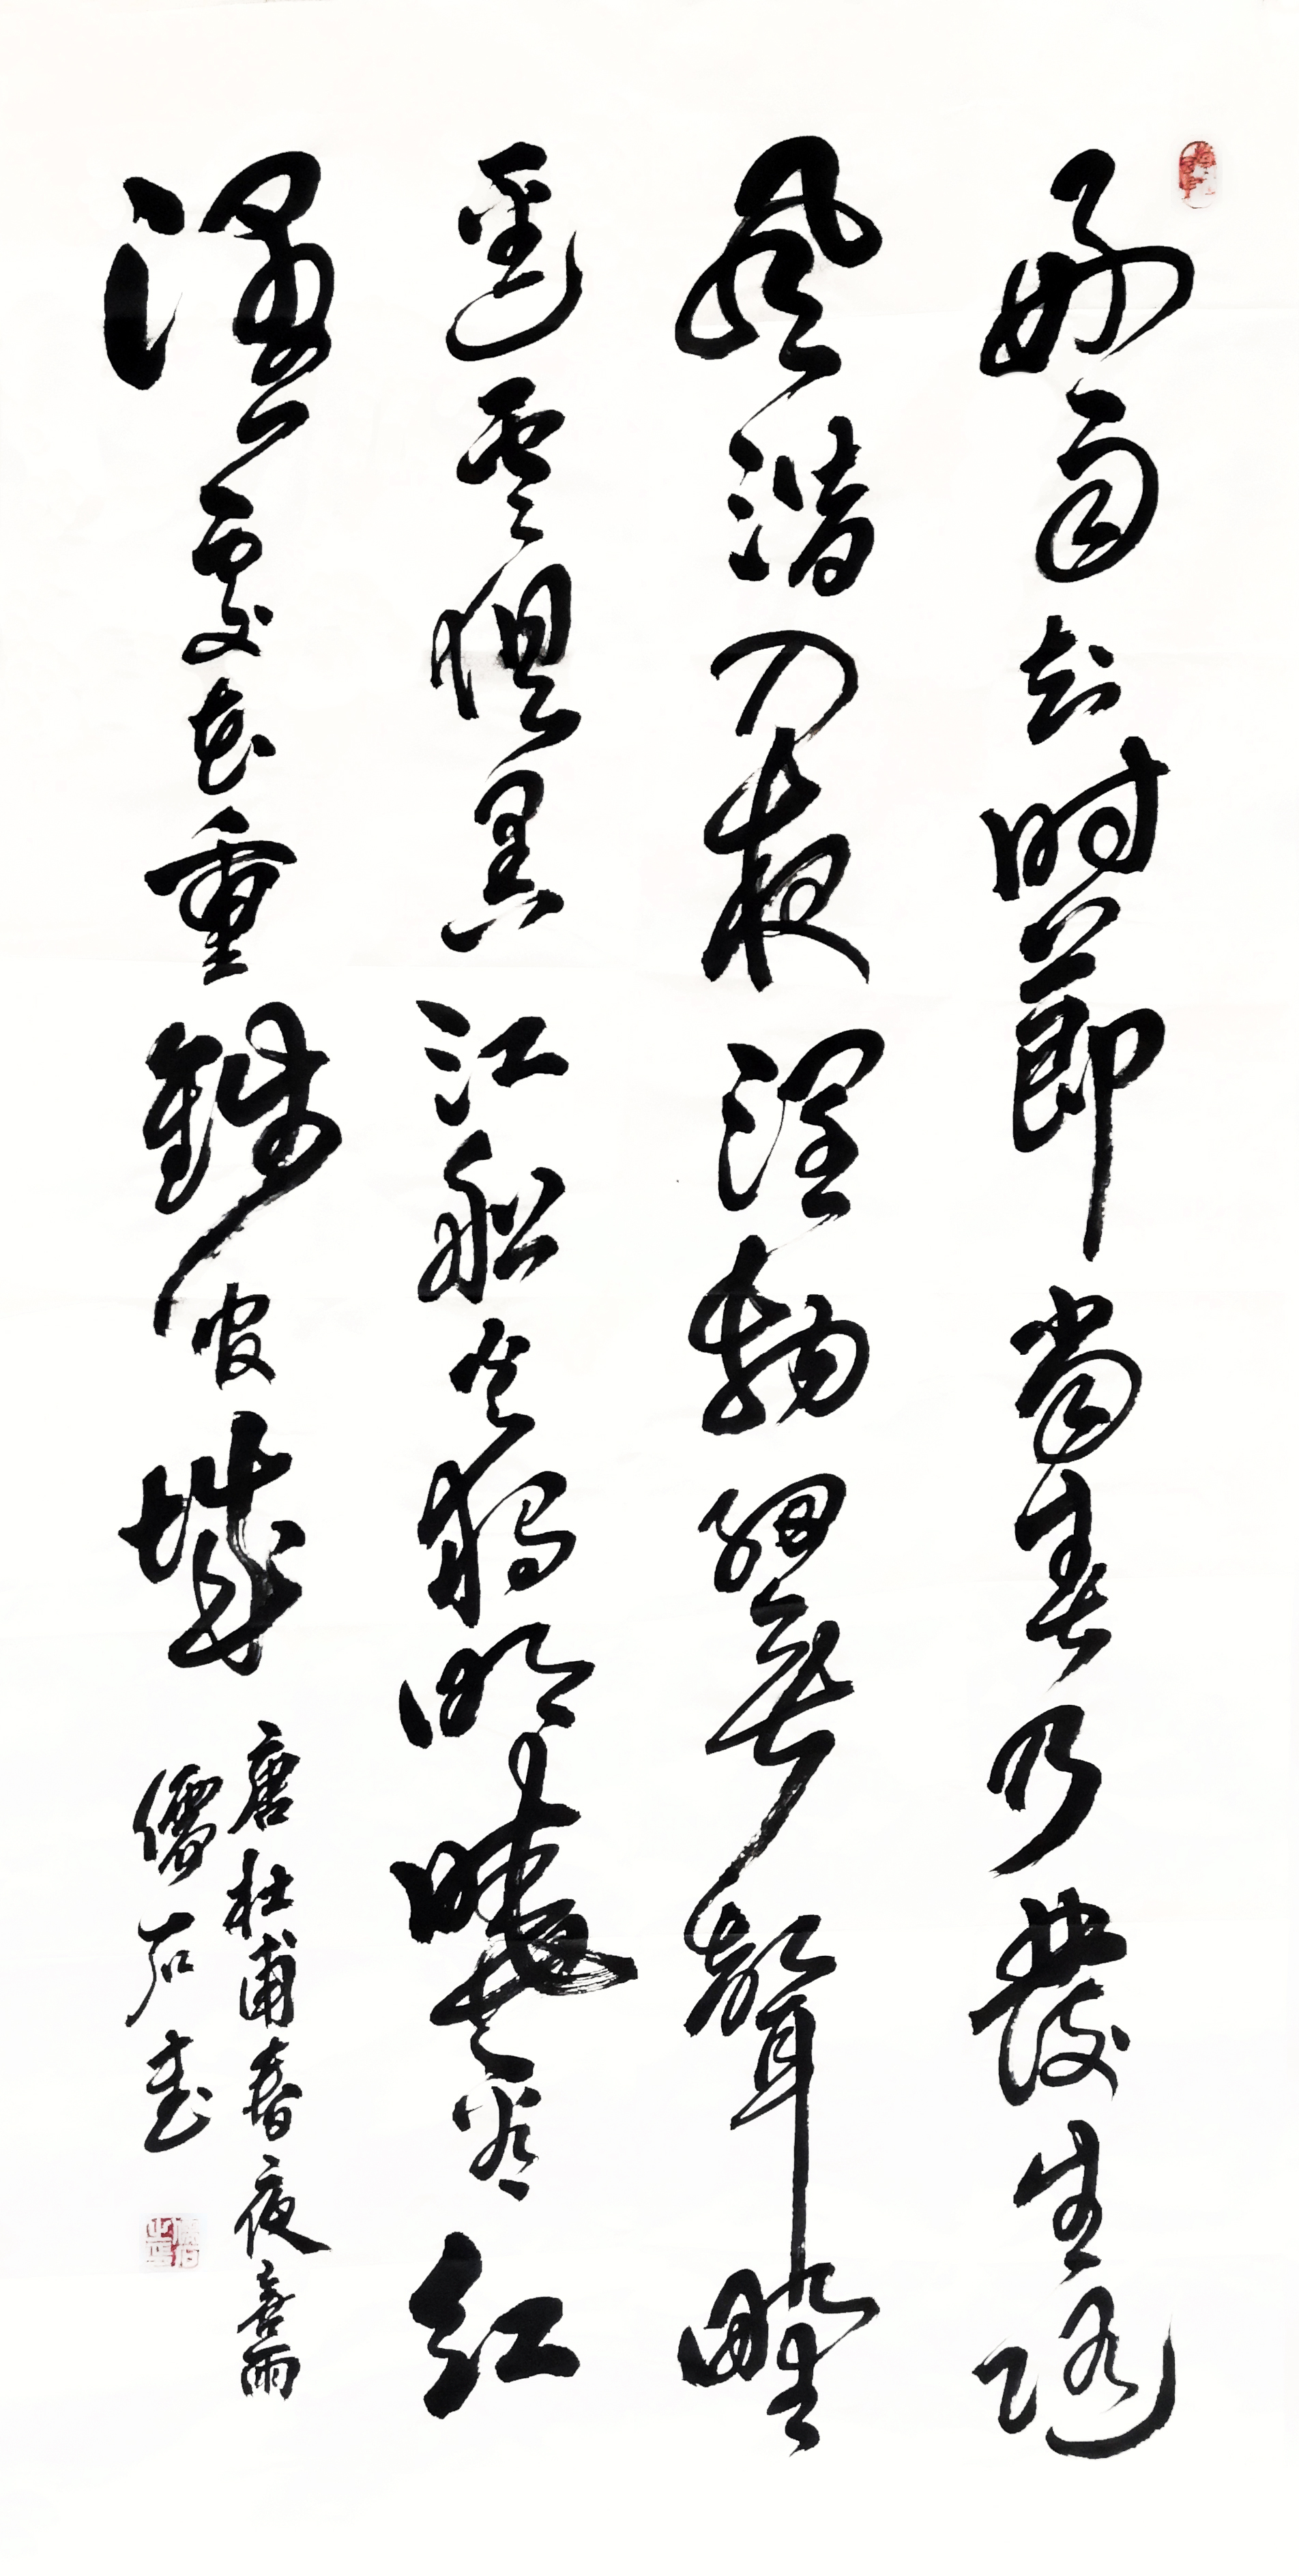 好雨知时節當春乃發生随
風潛入夜潤物細無聲野
逕雲俱黑江船火獨明曉看紅
濕處花重錦官城
唐杜甫春夜喜雨
儒石書